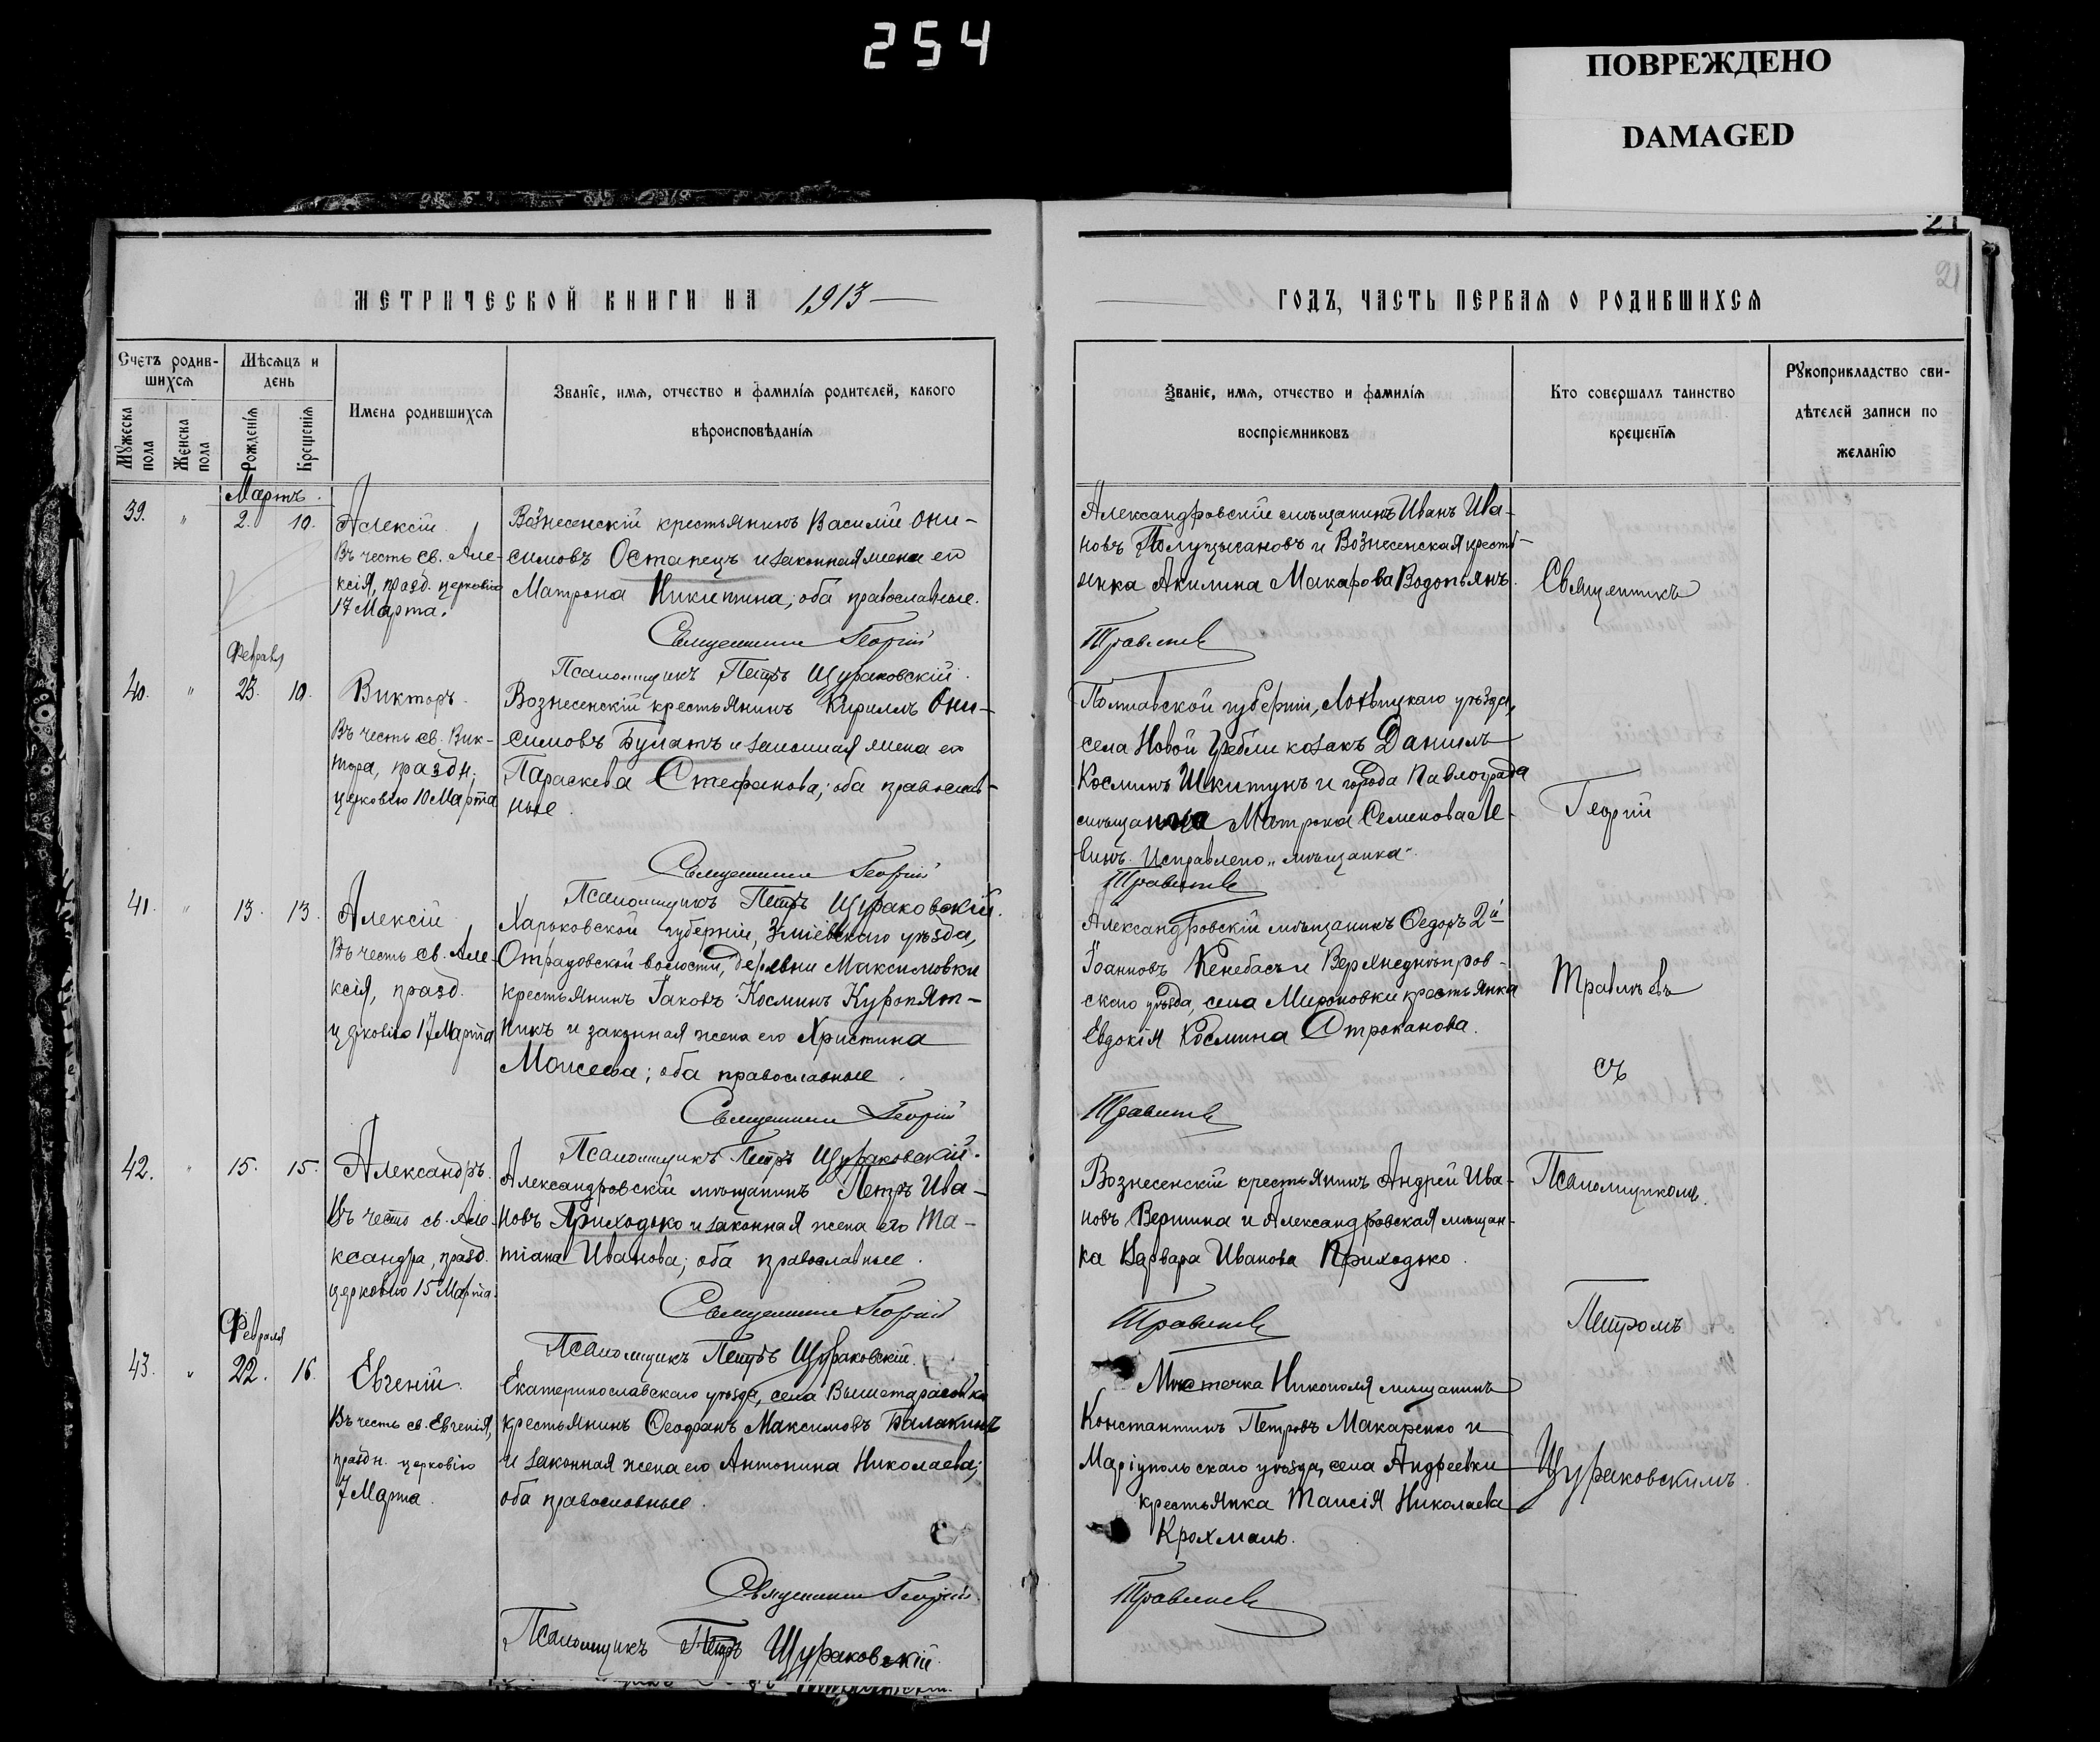 254
ПОВРЕЖДЕНО
DAMAGED
21
21
МЕТРИЧЕСКОЙ КНИГИ НА 1913
ГОДЪ, ЧАСТЬ ПЕРВАЯ О РОДИВШИХСЯ
Счетъ родив-
шихся
Мѣсяцъ и
день
Мужеска
пола
Женска
пола
Рожденія
Крещенія
Имена родившихся
Званіе, имя, отчество и фамилія родителей, какого
вѣроисповѣданія
Званіе, имя, отчество и фамилія
воспріемниковъ
Кто совершалъ таинство
крещенія
Рукоприкладство сви-
дѣтелей записи по
желанію
Мартъ.
39. " 2. 10.
Алексій.
Въ честь св. Але-
ксія, празд. церковію
17 Марта.
Вознесенскій крестьянинъ Василій Они-
симовъ Остапецъ и законная жена его
Матрона Никитина; оба православные.
Священникъ Георгій
Псаломщикъ Петръ Щураковскій.
Александровскій мѣщанинъ Иванъ Ива-
новъ Полуцыгановъ и Вознесенская кресть-
янка Акилина Макарова Водопьянъ.
Травлевъ
Февраля
40. " 23. 10.
Викторъ.
Въ честь св. Вик-
тора, праздн.
церковію 10 Марта
Вознесенскій крестьянинъ Кириллъ Они-
симовъ Булатъ и законная жена его
Параскева Стефанова; оба православ-
ные.
Священникъ Георгій
Псаломщикъ Петръ Щураковскій.
Полтавской губерніи, Лохвицкаго уѣзда,
села Новой Гребли козакъ Даніилъ
Косминъ Шкитунъ и города Павлограда
мѣщанка Матрона Семенова Ле-
винъ. Исправлено „мѣщанка".
Травлевъ
41. " 13. 13.
Алексій
Въ честь св. Але-
ксія, празд.
церковію 17 Марта
Харьковской губерніи, Зміевскаго уѣзда,
Отрадовской волости, деревни Максимовки
крестьянинъ Іаковъ Косминъ Куропят-
никъ и законная жена его Христина
Моисеева; оба православные.
Священникъ Георгій
Псаломщикъ Петръ Щураковскій.
Александровскій мѣщанинъ Ѳедоръ 2й
Іоанновъ Кенебасъ и Верхнеднѣпров-
скаго уѣзда, села Мироновки крестьянка
Евдокія Космина Строканова.
Травлевъ
42. " 15. 15.
Александръ.
Въ честь св. Але-
ксандра, празд.
церковію 15 Марта.
Александровскій мѣщанинъ Петръ Ива-
новъ Приходько и законная жена его Та-
тіана Иванова; оба православные.
Священникъ Георгій
Псаломщикъ Петръ Щураковскій.
Вознесенскій крестьянинъ Андрей Ива-
новъ Вершина и Александровская мѣщан-
ка Варвара Иванова Приходько.
Травлевъ
Февраля
43. " 22. 16.
Евгеній.
Въ честь св. Евгенія,
праздн. церковію
7 Марта.
Екатеринославскаго уѣзда, села Вышетарасовки
крестьянинъ Ѳеофанъ Максимовъ Балакинъ
и законная жена его Антонина Николаева;
оба православные.
Священникъ Георгій
Псаломщикъ Петръ Щураковскій.
Мѣстечка Никополя мѣщанинъ
Константинъ Петровъ Макаренко и
Маріупольскаго уѣзда, села Андреевки
крестьянка Таисія Николаева
Крохмаль.
Травлевъ
Священникъ
Георгій
Травлевъ
съ
Псаломщикомъ
Петромъ
Щураковскимъ.